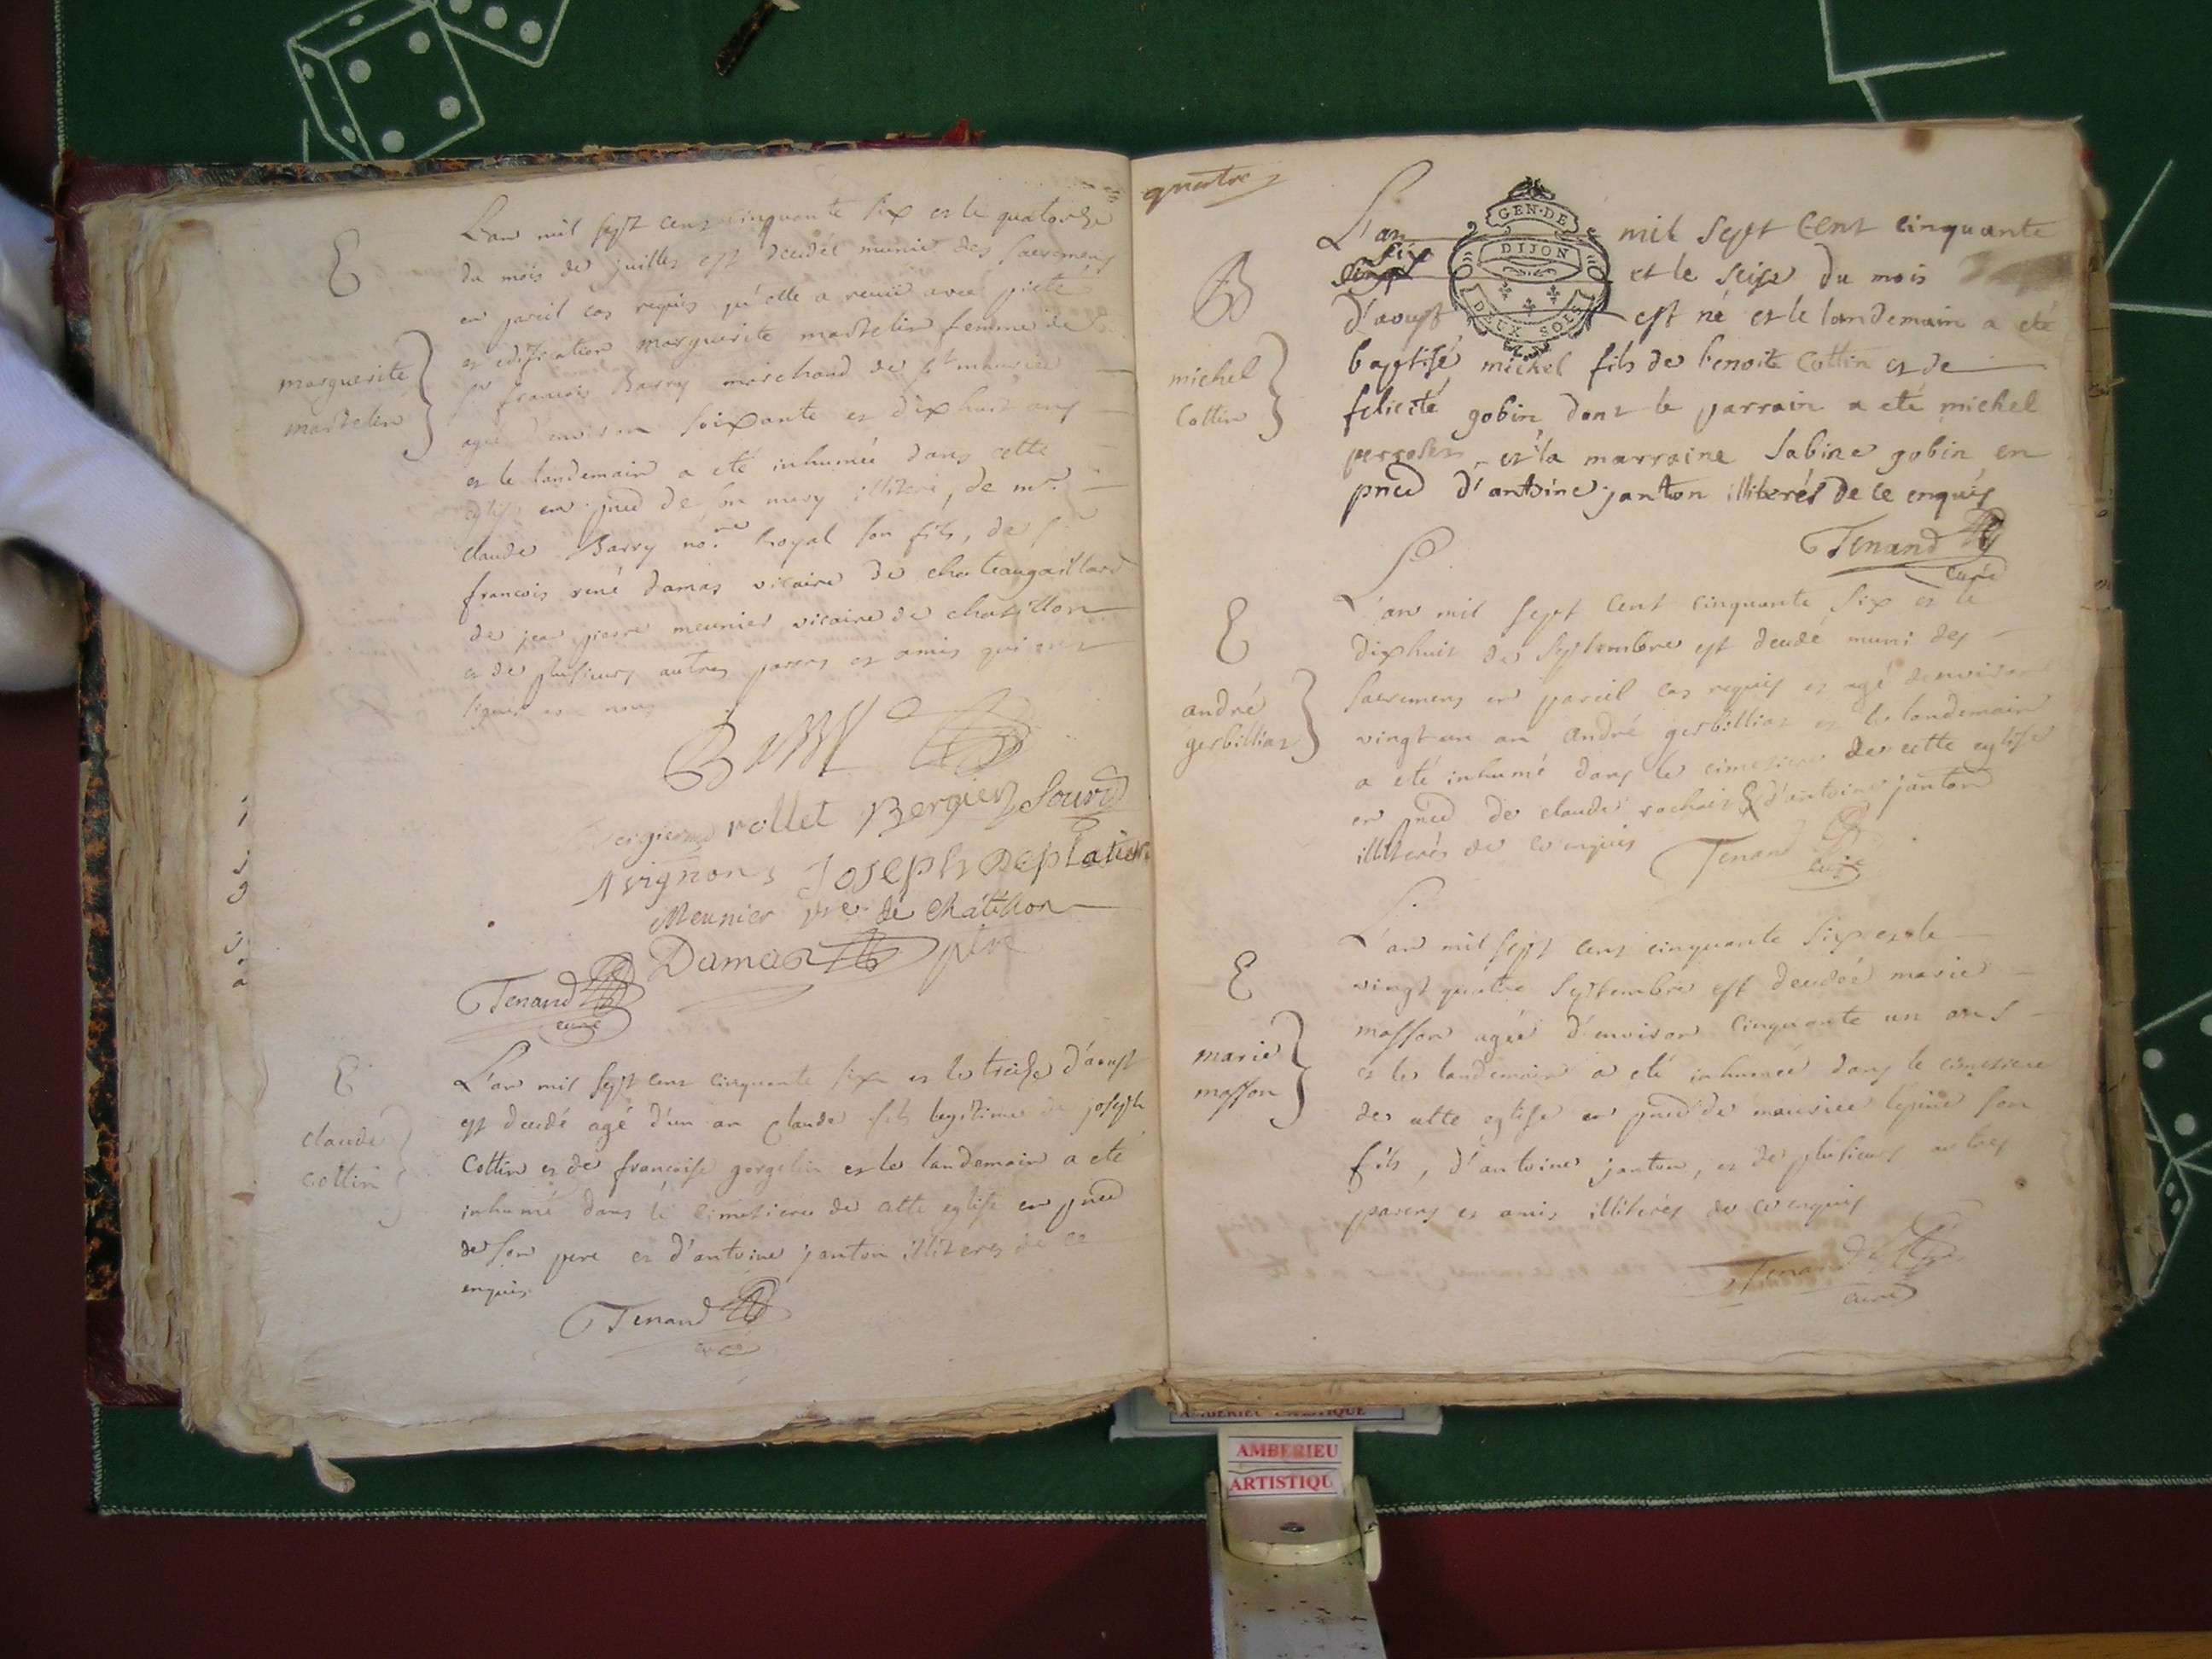 L'an mil sept cent cinquante six et le quatorze
du mois de juillet est decedée munie des sacremens
en pareil cas requis qu'elle a recu avec pieté
et edification marguerite martelin femme de
sr francois Barry marchand de st maurice
agée d'environ soixante et dix huit ans
et le landemain a eté inhumée dans cette
eglise en pnce de son mary illiteré, de mre
claude Barry nore Royal son fils, de sr
francois rené damas vicaire de chateaugaillard
de jean pierre meunier vicaire de chatillon
et de plusieurs autres parens et amis qui ont
signés avec nous
E
marguerite
martelin
rollet Bergier Sourd
Avignon Joseph Deplatier
Meunier vre de Chatillon
Damas ptre
Tenand
curé
E
claude
cottin
L'an mil sept cent cinquante six et le treize d'aoust
est decedé agé d'un an claude fils legitime de joseph
cottin et de francoise gorgelin et le landemain a eté
inhumé dans le cimetiere de cette eglise en pnce
de son pere et d'antoine janton illiterés de ce
enquis
Tenand
curé
quatre
GEN. DE
DIJON
DEUX SOLS
L'an mil sept cent cinquante
six et le seise du mois
d'aoust est né et le landemain a eté
baptisé michel fils de benoit cottin et de
felicité gobin dont le parrain a eté michel
perroset et la marraine sabine gobin en
pnce d'antoine janton illiterés de ce enquis
B
michel
cottin
Tenand
curé
L'an mil sept cent cinquante six et le
dixhuit de septembre est decedé muni des
sacremens en pareil cas requis et agé denviron
vingt un an andré gerbilliat et le landemain
a eté inhumé dans le cimetiere de cette eglise
en pnce de claude rochaix & d'antoine janton
illiterés de ce enquis
E
andré
gerbilliat
Tenand
curé
L'an mil sept cent cinquante six et le
vingt quatre septembre est decedée marie
masson agée d'environ cinquante un ans
et le landemain a eté inhumée dans le cimetiere
de cette eglise en pnce de maurice lepine son
fils, d'antoine janton, et de plusieurs autres
parens et amis illiterés de ce enquis
E
marie
masson
Tenand
curé
AMBERIEU ARTISTIQUE
AMBERIEU
ARTISTIQU